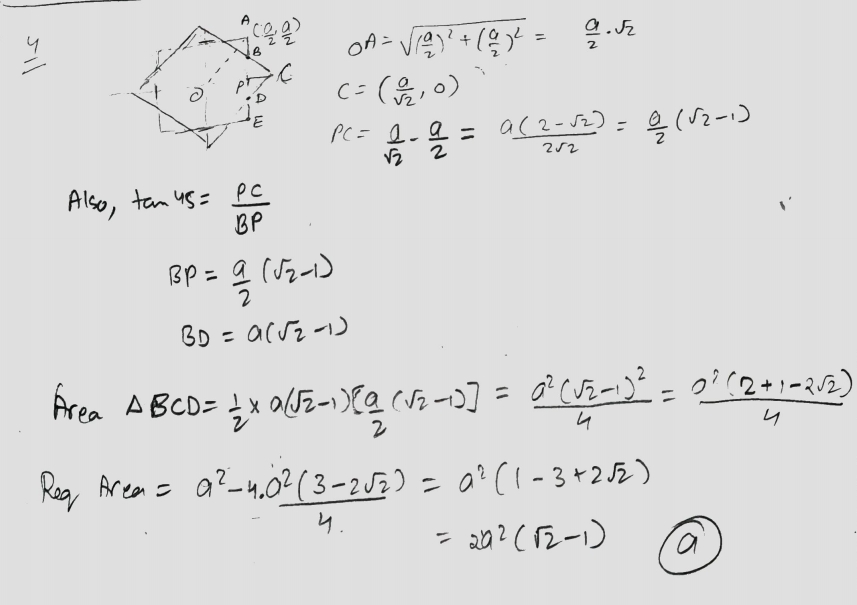 4
A (a/2, a/2)
B
P C
O D
E
OA = √((a/2)² + (a/2)²) = a/2 . √2
C = (a/√2, 0)
PC = a/√2 - a/2 = a(2-√2)/2√2 = a/2 (√2-1)
Also, tan 45 = PC/BP
BP = a/2 (√2-1)
BD = a(√2-1)
Area Δ BCD = 1/2 x a(√2-1)[a/2 (√2-1)] = a²(√2-1)²/4 = a²(2+1-2√2)/4
Req Area = a² - 4.a²(3-2√2)/4. = a²(1-3+2√2)
= 2a²(√2-1) a